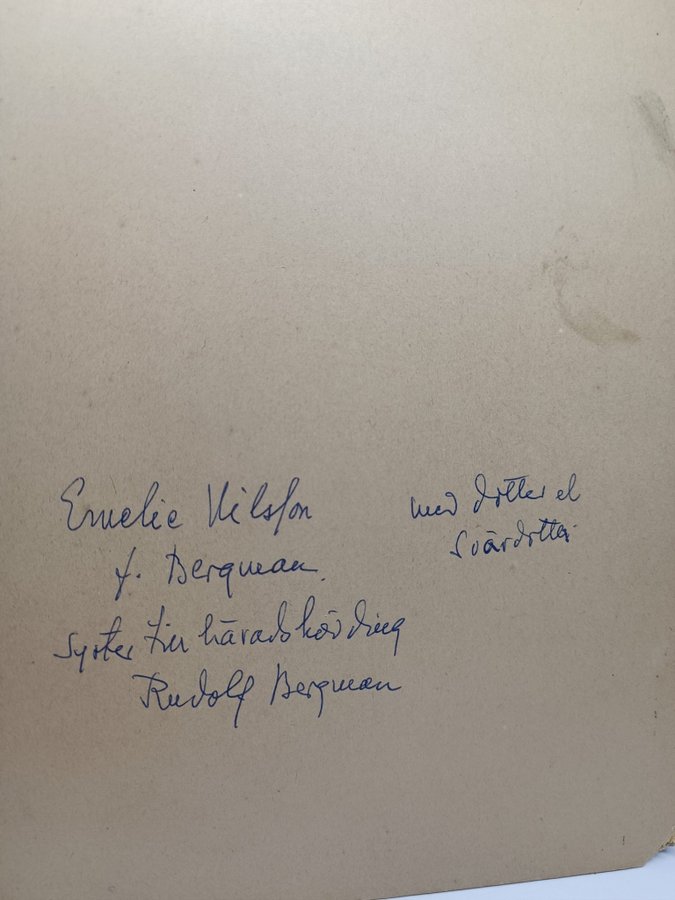 Emelie Nilsson
f. Bergman.
syster till häradshövding
Rudolf Bergman
med dotter el
svärdotter